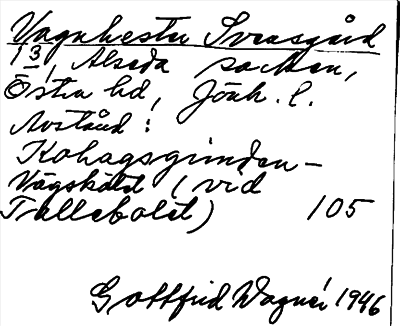 Vagnhester Svensgård
1 3/1, Alseda socken,
Östra hd, Jönk. l.
Avstånd:
Kohagsgrinden -
Vägskälet (vid
Trällebolet) 105
Gottfrid Wagnér 1946